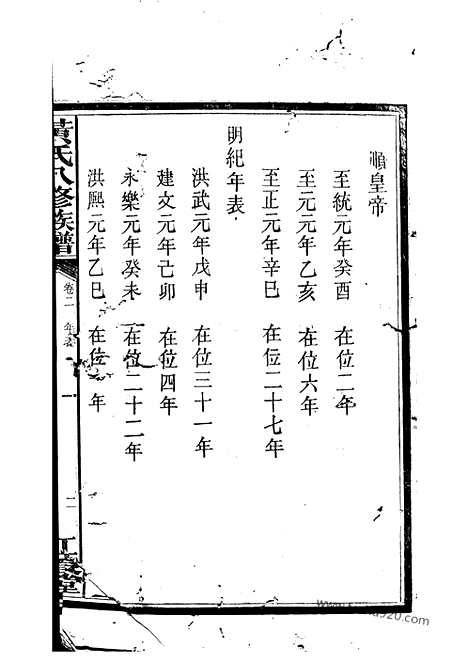 順皇帝
至統元年癸酉 在位二年
至元元年乙亥 在位六年
至正元年辛巳 在位二十七年
明紀年表
洪武元年戊申 在位三十一年
建文元年己卯 在位四年
永樂元年癸未 在位二十二年
洪熙元年乙巳 在位 年
黃氏八修族譜
卷二 年表